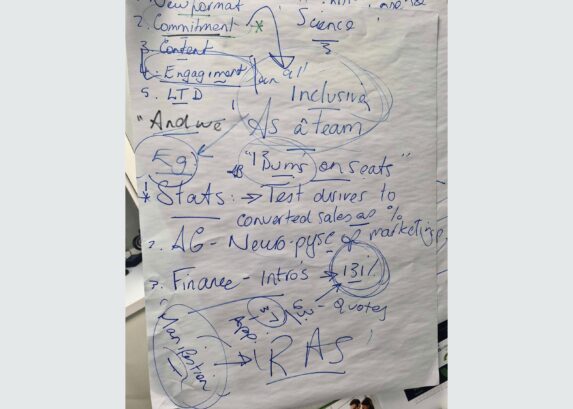 1. New format
2. Commitment *
Science
3
3. Content
4. Engagiment
5. LTD
Inclusive
"And we"
As a team
Eg
"1 Bums on seats"
* Stats: → Test drives to
converted sales as %
2. AG - Neuro-pysc of marketing
3. Finance - Intro's → 131%
App: 37 - Quotes
Manifestion → "RAS"